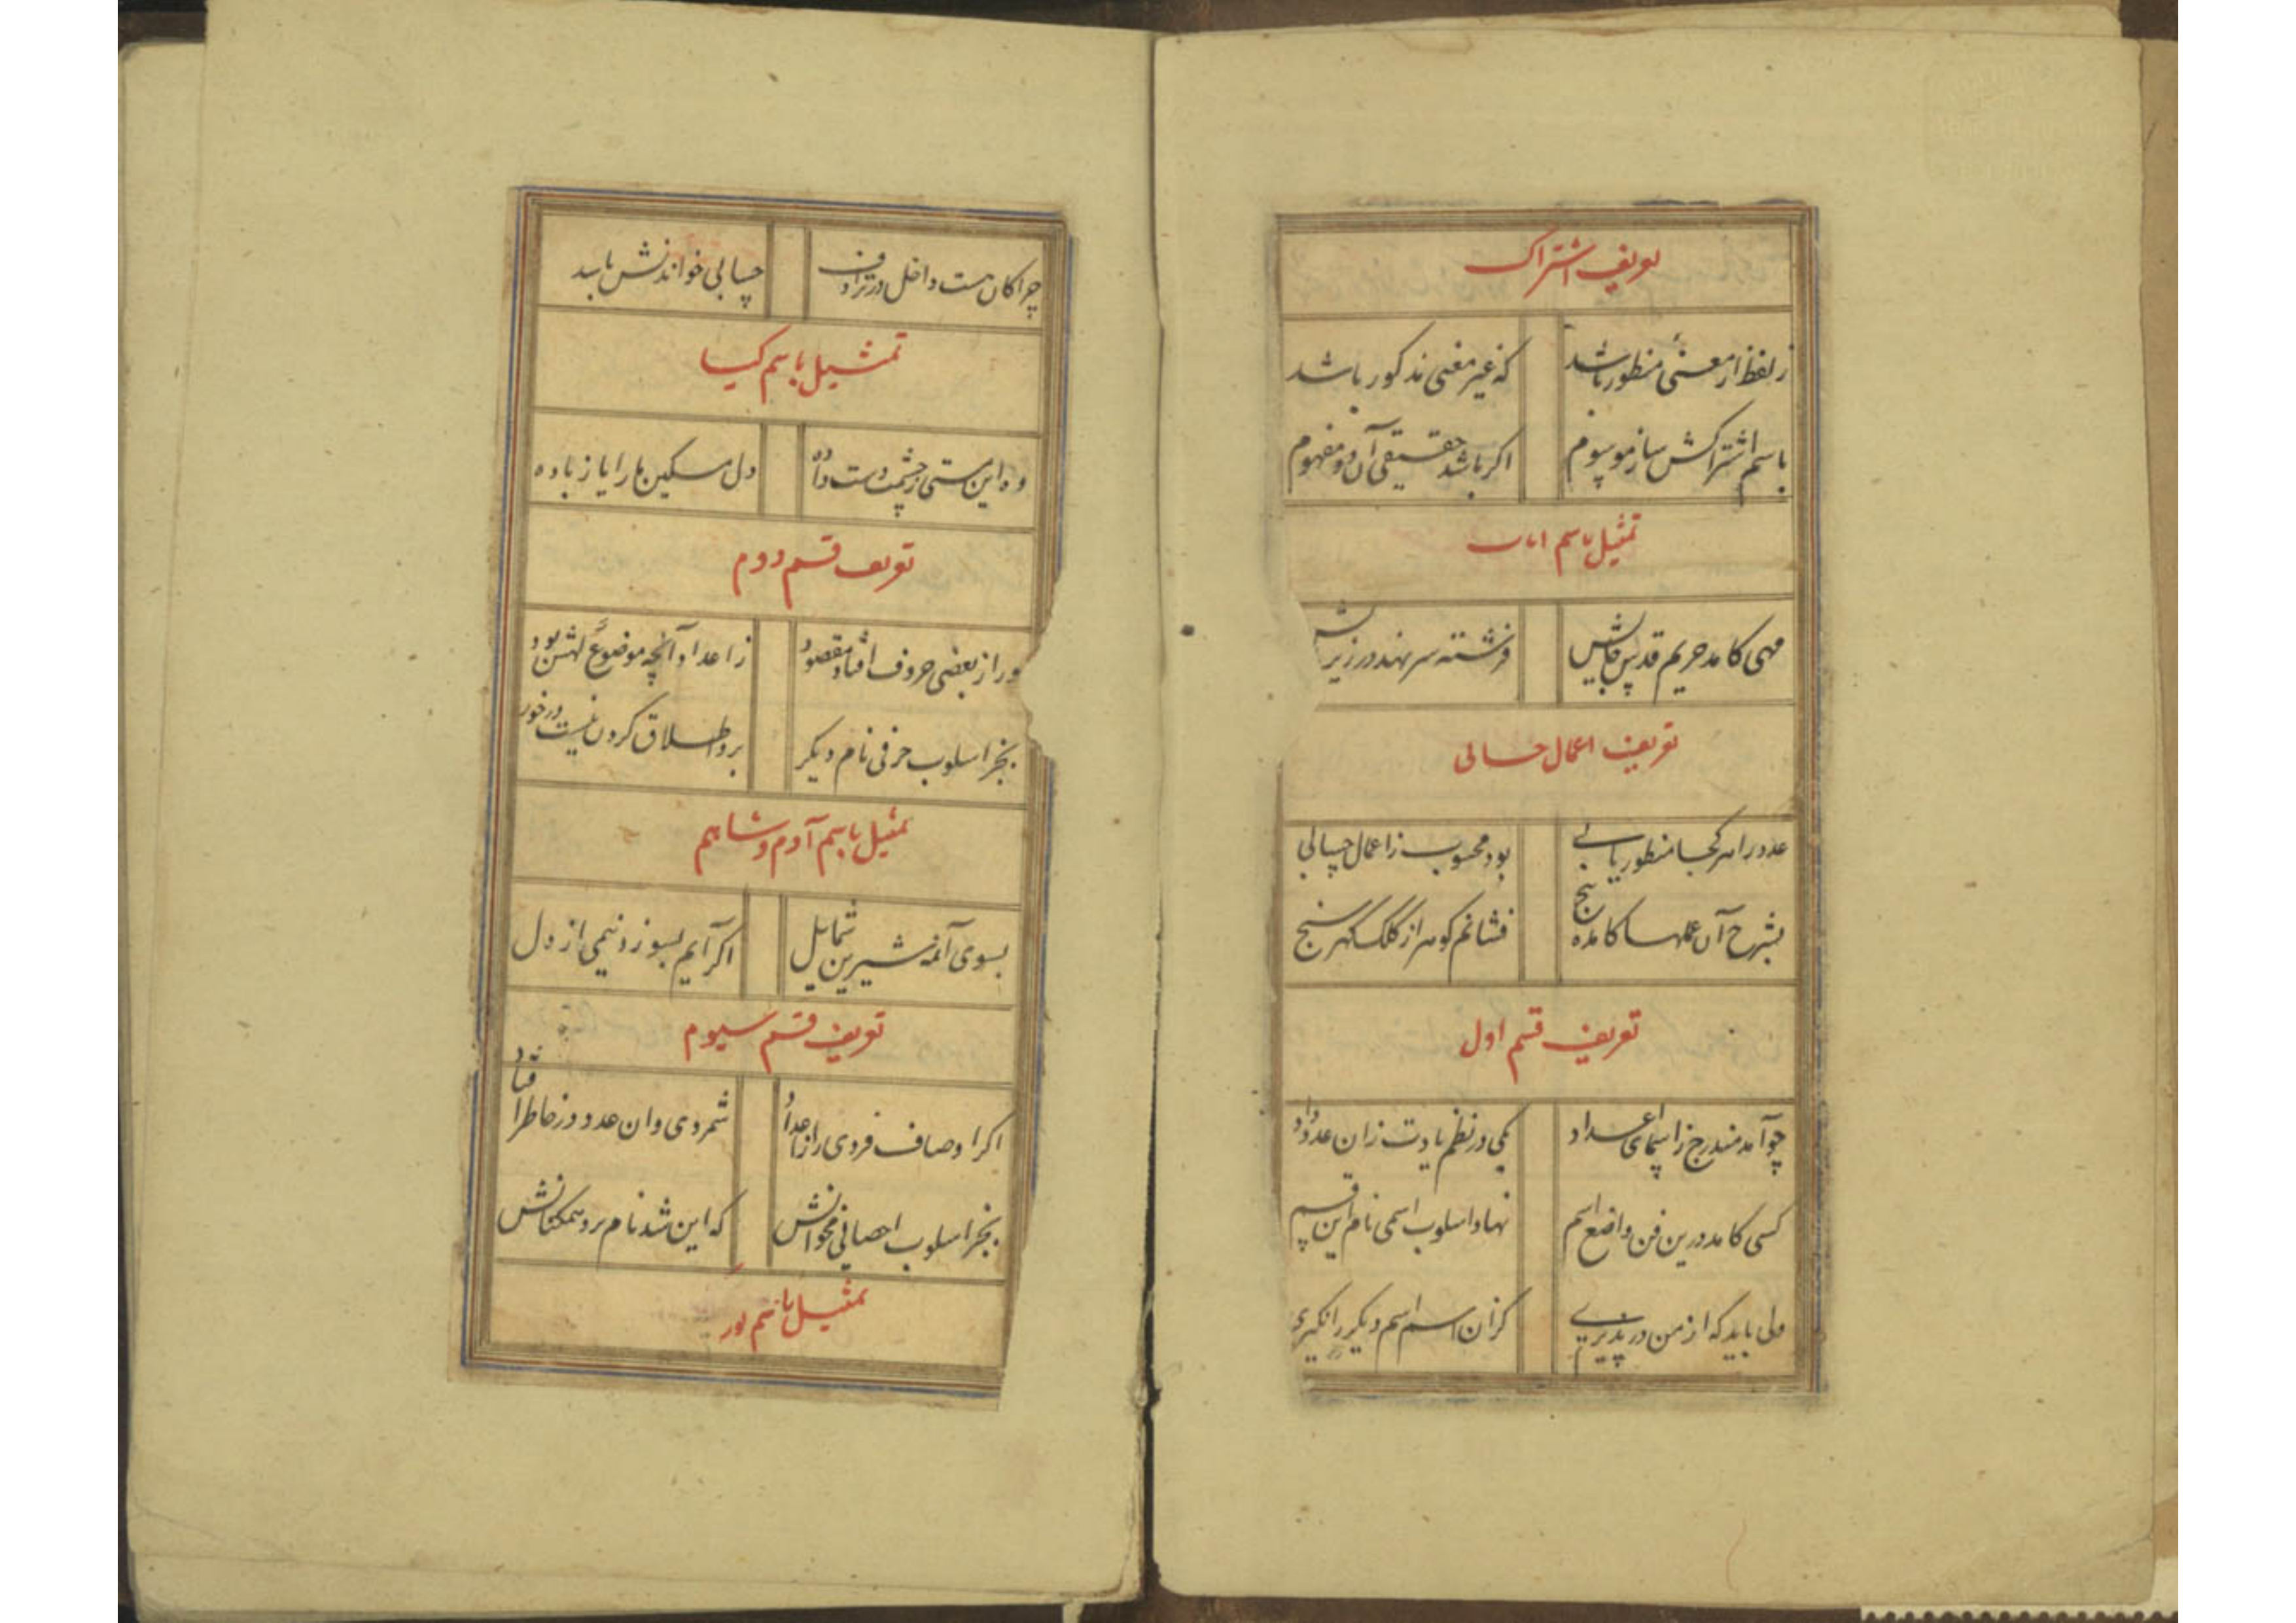 تعریف اشتراک
ز لفظ ار معنئ منظور باشد که غیر معنی مذکور باشد
باسم اشتراکش ساز موسوم اکر باشد حقیقی آن دو مفهوم
تمثیل باسم
مهی کامد حریم قدس جایش فرشته سر نهد در زیر
تعریف اعمال حسابی
عدد را هر کجا منظور یابے بود محسوب ز اعمال حسابی
بشرح آن عملها کامده پنج فشانم کوهر از کلک کهر سنج
تعریف قسم اول
چو آمد مندرج ز اسمای اعداد یکی در نظم یادت زان عدد داد
کسی کامد درین فن واضع اسم نهاد اسلوب اسمی نام این قسم
ولی باید که از من در پذیرے کزان اسم اسم دیکر را نکیرے
چرا کان هست داخل در ترادف حسابی خواندنش باید
تمثیل باسم کیا
وه این مستی ز چشمت دست داده دل مسکین ما را یا ز باده
تعریف قسم دوم
ور از بعضی حروف افتاد مقصود ز اعداد آنچه موضوع لهش بود
بجز اسلوب حرفی نام دیکر برو اطلاق کردن نیست در خور
تمثیل باسم آدم و شاهم
بسوی آنمه شیرین شمایل اکر آیم بسوزد نیمی از دل
تعریف قسم سیوم
اکر اوصاف فردی را ز اعداد شمردی وان عدد در خاطر افتاد
بجز اسلوب احصائی مخوانش که این شد نام برد ممکنانش
تمثیل باسم نور